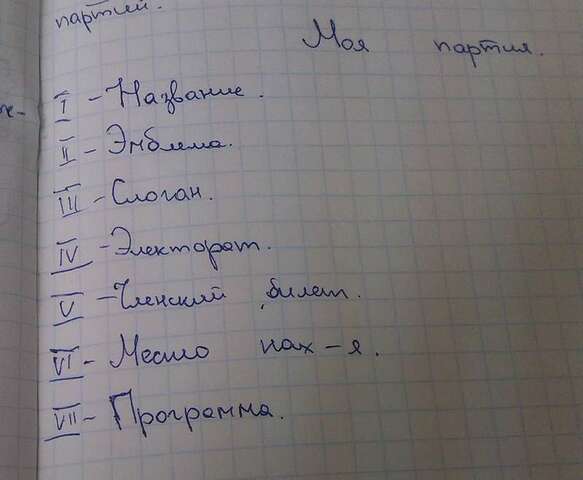 партий.
Моя партия.
I - Название.
II - Эмблема.
III - Слоган.
IV - Электорат.
V - Членский билет.
VI - Место нах-я.
VII - Программа.